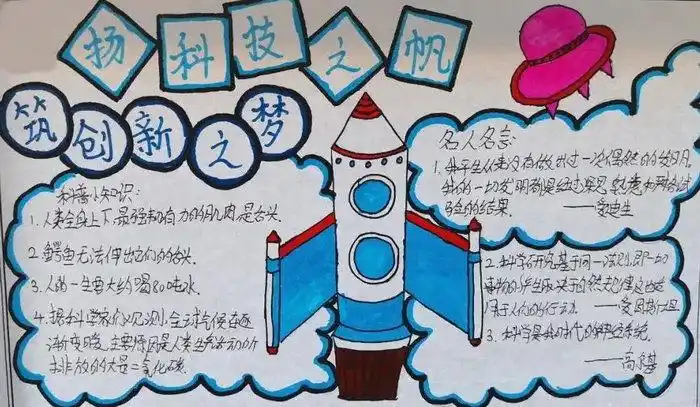 扬科技之帆
筑创新之梦
科普小知识:
1. 人类全身上下,最强韧有力的肌肉,是舌头.
2. 鳄鱼无法伸出它们的舌头.
3. 人的一生要大约喝80吨水.
4. 据科学家们观测,全球气候在逐
渐变暖,主要原因是人类生产活动所
排放的大量二氧化碳.
名人名言:
1. 我平生从来没有做出过一次偶然的发明.
我的一切发明都是经过深思
验的结果. ——爱迪生
2. 科学研究基于同一法则,即一切
事物的产生取决于自然规律,这也适
用于人们的行动. ——爱因斯坦
3. 科学是我们时代的神经系统.
——高尔基